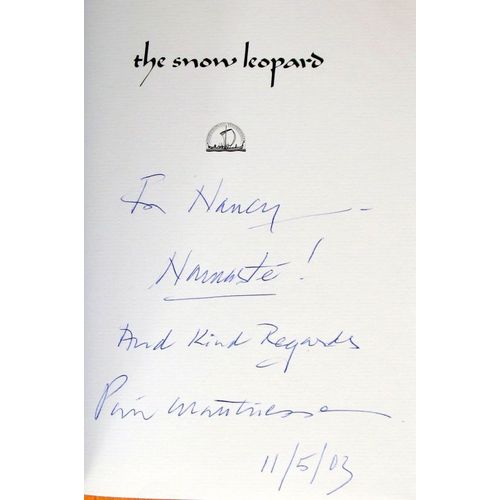 the snow leopard
To Nancy —
Namasté!
And Kind Regards
Peter Matthiessen
11/5/03